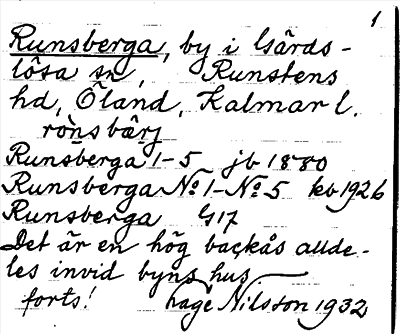 1
Runsberga, by i Gärds-
lösa sn, Runstens
hd, Öland, Kalmar l.
rònsbärj
Runsberga 1-5 jb 1880
Runsberga No 1-No 5 kb 1926
Runsberga G17
Det är en hög backås allde-
les invid byns hus
forts! Hage Nilsson 1932